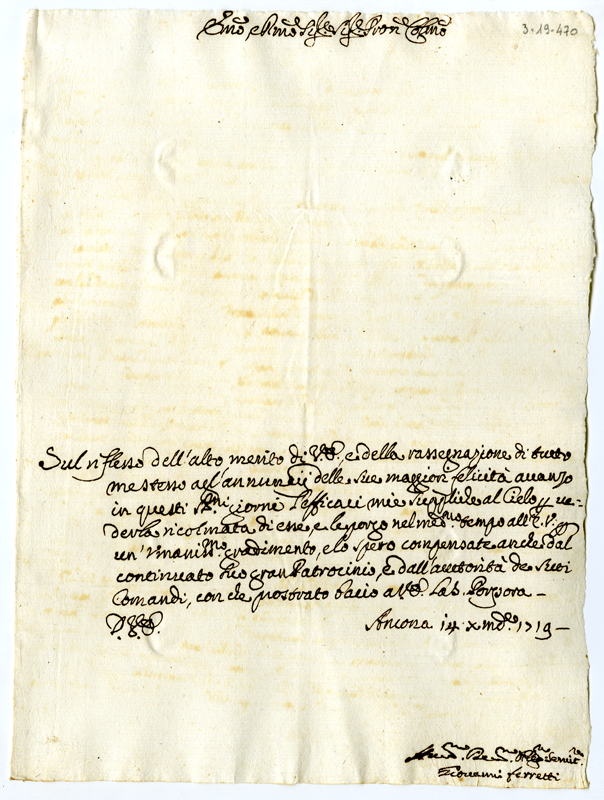 Emo e Rmo Sig.re Sig.re Pron Colmo
3-19-470
Sul riflesso dell'alto merito di V.E. e della rassegnazione di tutto
me stesso agl'annuncij delle sue maggiori felicità avanzo
in questi SS.mi giorni l'efficaci mie suppliche al Cielo p ve-
derla ricolmata di esse, e le porgo nel med.mo tempo all'E.V. p
un' umaniss.mo gradimento, e lo spero compensate anche dal
continuato suo gran Patrocinio, e dall'autorità de suoi
Comandi, con che prostrato bacio a V.E. la S. Porpora –
D.V.E.
Ancona 14 Xmbre 1719 –
Hum.mo Dev.mo Obl.mo Servit.re
Giovanni Ferretti